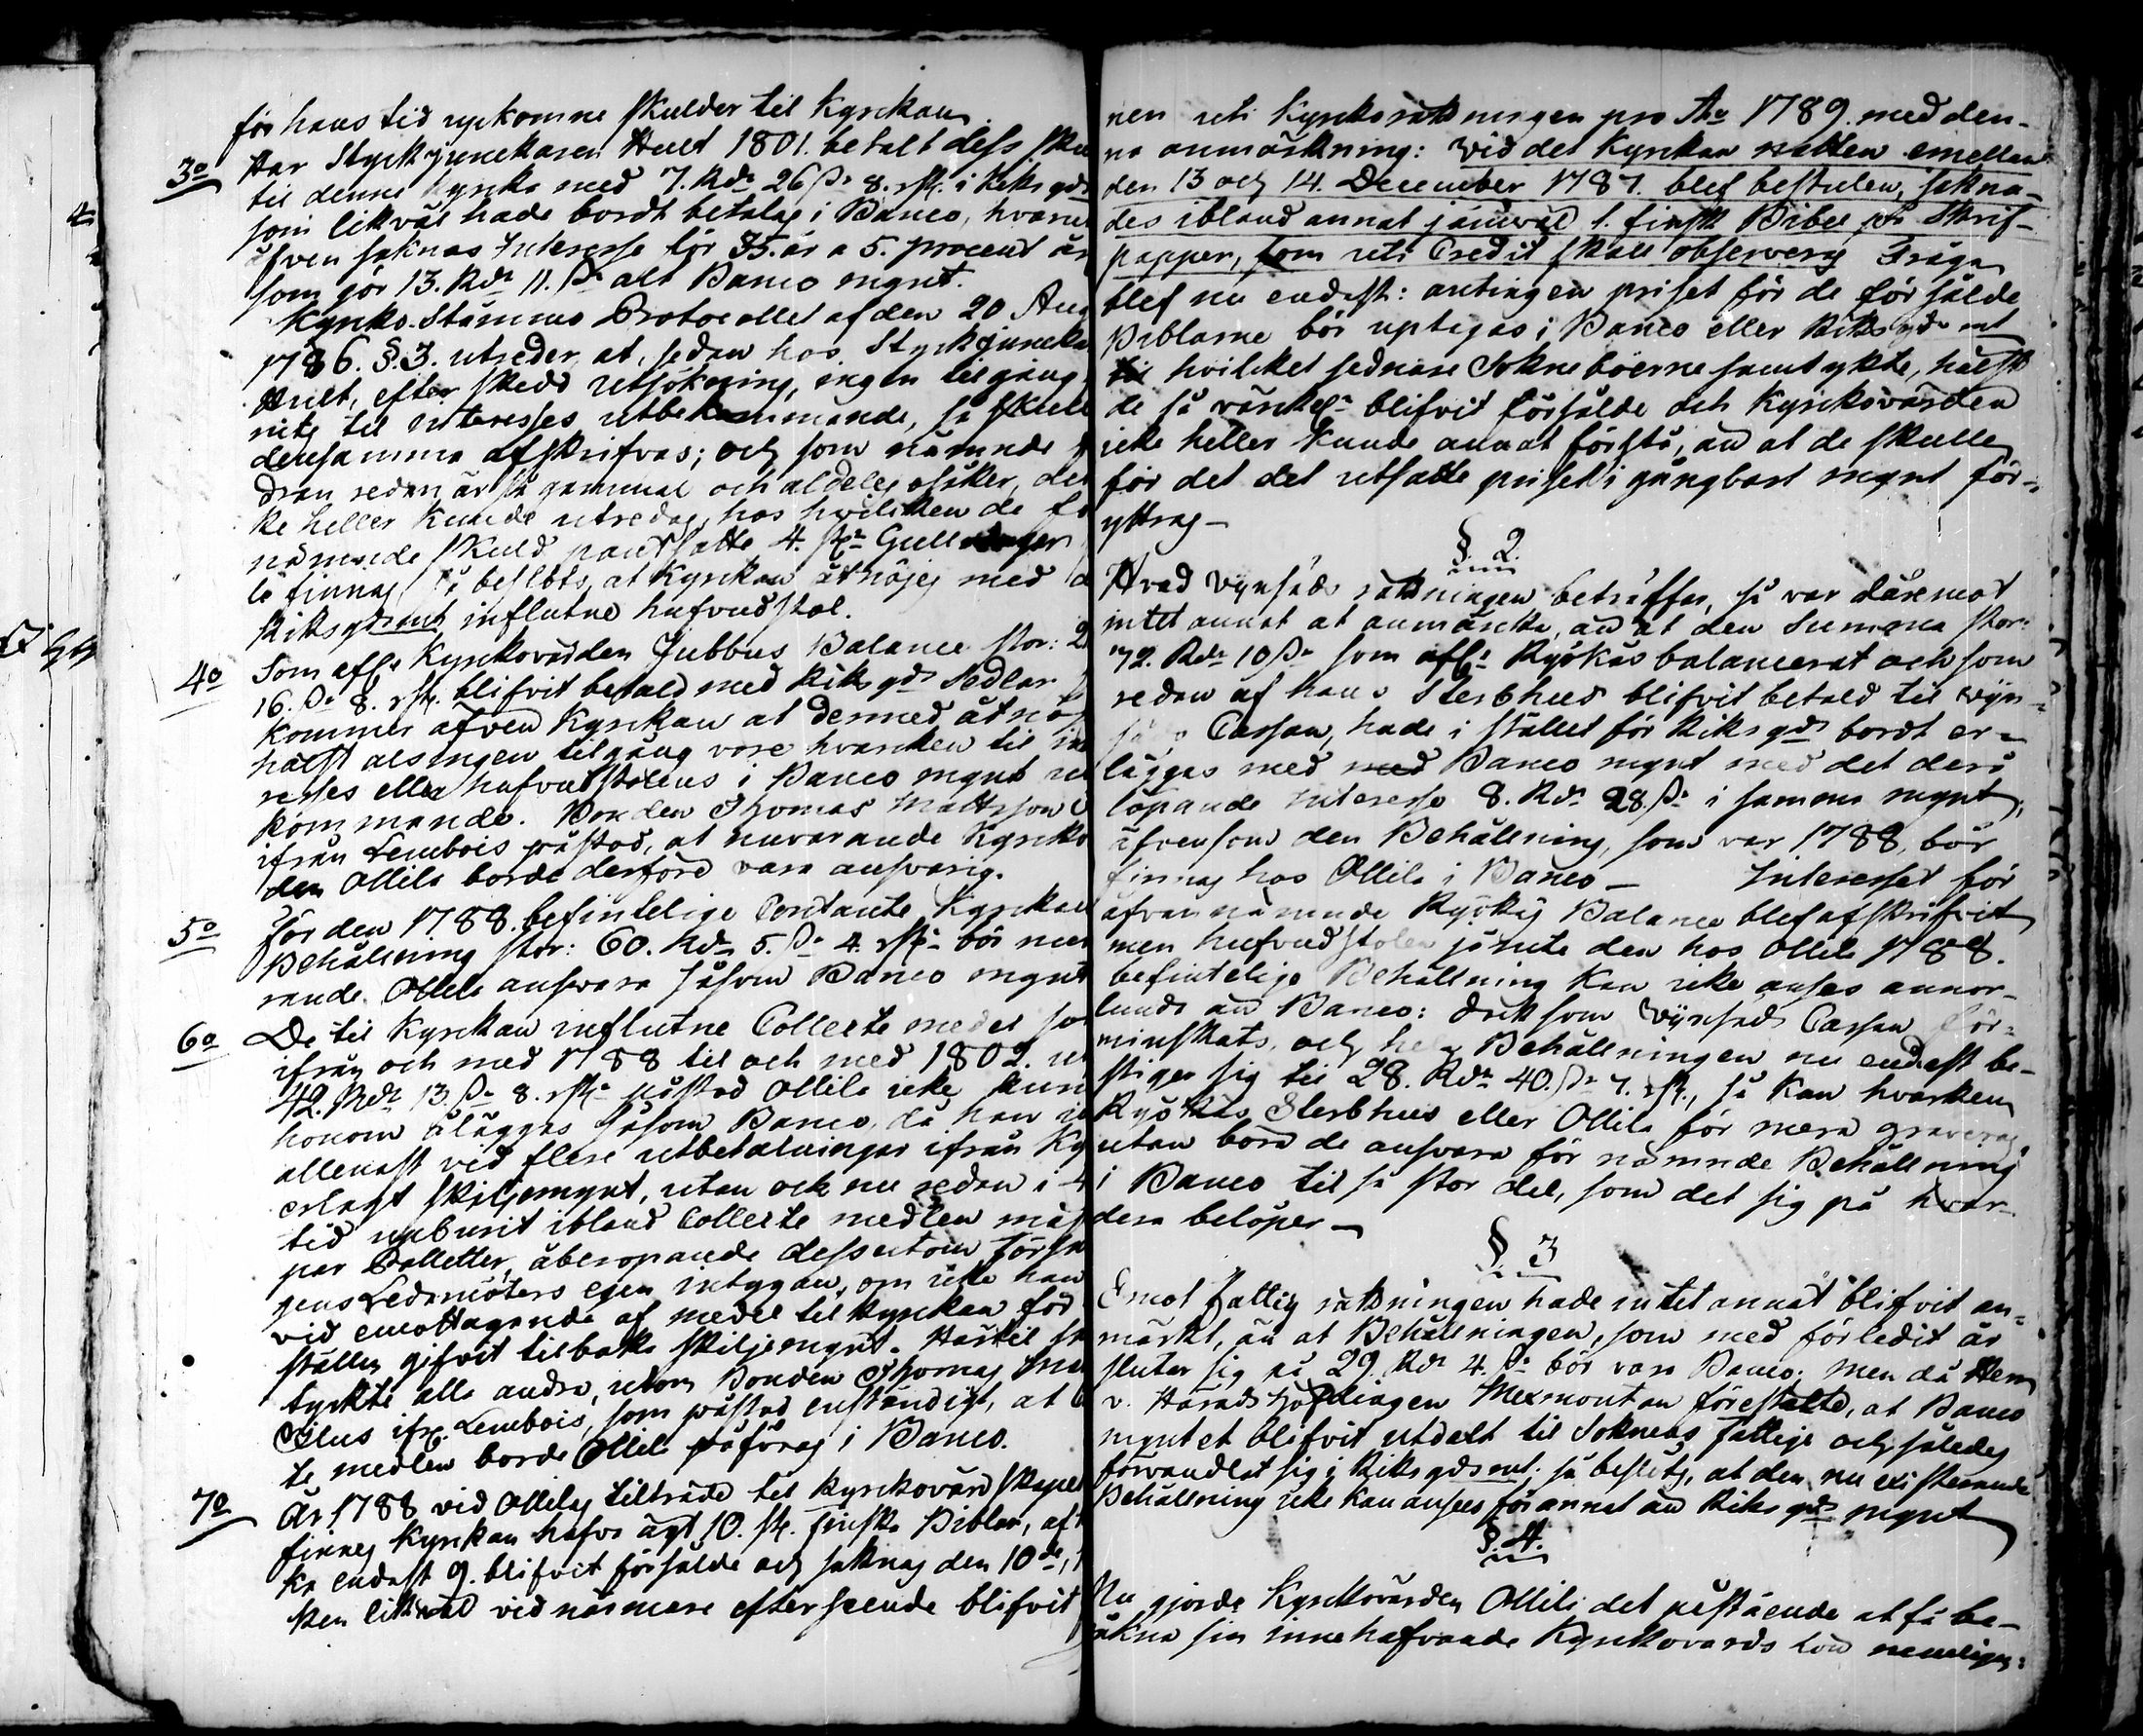 för hans tid upkomne skulder til Kyrckan.
3o Har Styckjunckaren Hult 1801. betalt dess sku
til denne Kyrcka med 7. Rdr 26 ß. 8. rst. i Riksgds
som likväl hade bordt betalas i Banco, hvarut
äfven saknas Interesse för 35. år a 5. procent år
som gör 13. Rdr 11. ß. alt Banco mynt.
Kyrko-Stämmo Protocollet af den 20 Aug
1786. §. 3. utreder, at, sedan hos Styckjuncka
Hult, efter skedd utsökning, ingen tilgång
nits til interesses utbekommande, så skull
densamma afskrifvas; och som nämnde f
dran redan är så gammal och aldeles osäker, det
ke heller kunde utredas, hos hvilcken de fö
nämnde skuld pantsatte 4. st. Gull ringar
lä finnas, så beslöts, at Kyrckan åtnöjes med d
Riksgdsmt influtne hufvudstol.
4o Som afl. Kyrckovärden Jubbus Balance stor: 2
16. ß. 8. rst. blifvit betald med Riksgds Sedlar
kommer äfven Kyrckan at dermed åtnöj
hälst alsingen tilgång vore hvarcken til in
resses eller hufvudstolens i Banco mynt ut
kommande. Bonden Thomas Mattsson
ifrån Lembois påstod, at nuvarande Kyrcko
den Ollila borde derföre vara answarig.
5o För den 1788. befintelige Contante Kyrckan
Behållning stor: 60. Rdr 5. ß. 4. rst. bör nu
rande Ollila answara såsom Banco mynt
6o De til Kyrckan influtne Collecte medel för
ifrån och med 1788 til och med 1802. ut
42. Rdr 13. ß. 8. rst. påstod Ollila icke kun
honom åläggas såsom Banco, då han ic
allenast vid flere utbetalningar ifrån Ky
erlagt skiljemynt, utan ock nu redan i 4
tid upburit ibland Collecte medlen mäs
par Polletter, åberopande dessutom Försa
gens Ledamöters egen intygan, om icke han
vid emottagande af medel til Kyrckan för
ställen gifvit tilbaka skiljemynt. Härtil sa
tyckte alla andra, utom Bonden Thomas Ma
Cilus ifr. Lembois, som påstod enständigt, at C
te medlen borde Ollila påföras i Banco.
7o År 1788 vid Ollilas tilträde til Kyrckovärdskapet
finnes Kyrckan hafva ägt 10. st. Finska Biblar, af
ka endast 9. blifvit försålde och saknas den 10de, h
ken likväl vid närmare efterseende blifvit f
nen uti Kyrckoräkningen pro Ao 1789. med den-
na anmärkning: Vid det Kyrckan natten emellan
den 13 och 14. December 1787. blef bestulen, sakna-
des ibland annat jämväl 1. finsk Bibel på Skrif-
papper, som uti Credit skall observeras. Fråga
blef nu endast: antingen priset för de försålde
Biblarne bör uptagas i Banco eller Riksgds mt
til hvilcket sednare Sokneboerne samtykte, hälst
de så värckel. blifvit försålde och Kyrckovärden
icke heller kunde annat förstå, än at de skulle
för det det utsatte priset i gångbart mynt för-
yttras-
§. 2.
Hvad Vijnsäds räkningen beträffar, så var däremot
intet annat at anmärcka, än at den Summa stor:
72. Rdr 10 ß. som afl. Ryökäs balancerat och som
redan af hans Sterbhus blifvit betald til Vijn-
säds Cassan, hade i stället för Riksgds bordt er-
läggas med med Banco mynt med det derå
löpande interesse 8. Rdr 28. ß. i samma mynt,
äfvensom den Behållning, som var 1788, bör
finnas hos Ollila i Banco- Interesset för
äfvannämnde Ryökäs Balance blef afskrifvit
men hufvudstolen jämte den hos Ollila 1788.
befintelige Behållning kan icke anses annor-
lunda än Banco: dock som Vijnsäds Cassan för-
minskats, och hela Behållningen nu endast be-
stiger sig til 28. Rdr 40. ß. 7. rst., så kan hvarcken
Ryökäs Sterbhus eller Ollila för mera graveras,
utan böra de answara för nämnde Behållning
i Banco til så stor del, som det sig på hvar-
dera belöper-
§ 3
Emot Fattig räkningen hade intet annat blifvit an-
märkt, än at Behållningen, som med förledit år
slutar sig på 29. Rdr 4. ß. bör vara Banco; men då Herr
v. Häradshöfdingen Mexmontan föreställte, at Banco
myntet blifvit utdelt til Soknens Fattige och således
förvandlat sig i Riksgdsmt; så beslöts, at den nu existerande
Behållning icke kan anses för annat än Riksgds mynt
§. 4.
Nu gjorde Kyrckovärden Ollila det påstående at få be-
räkna sin innehafvande Kyrckovärds lön nemligen: